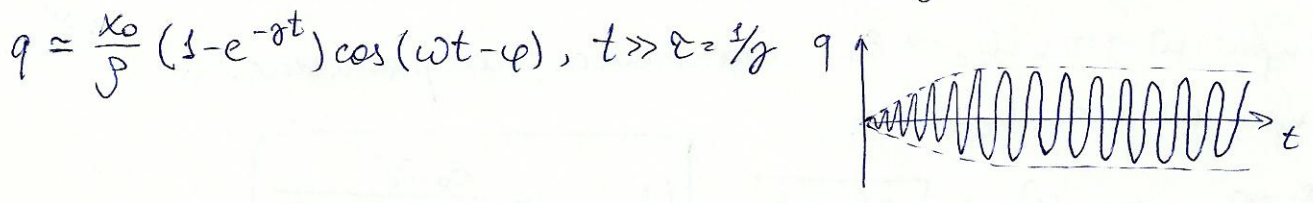 q ≃ x₀/ρ (1-e^-γt) cos(ωt-φ), t≫τ=1/γ q
t